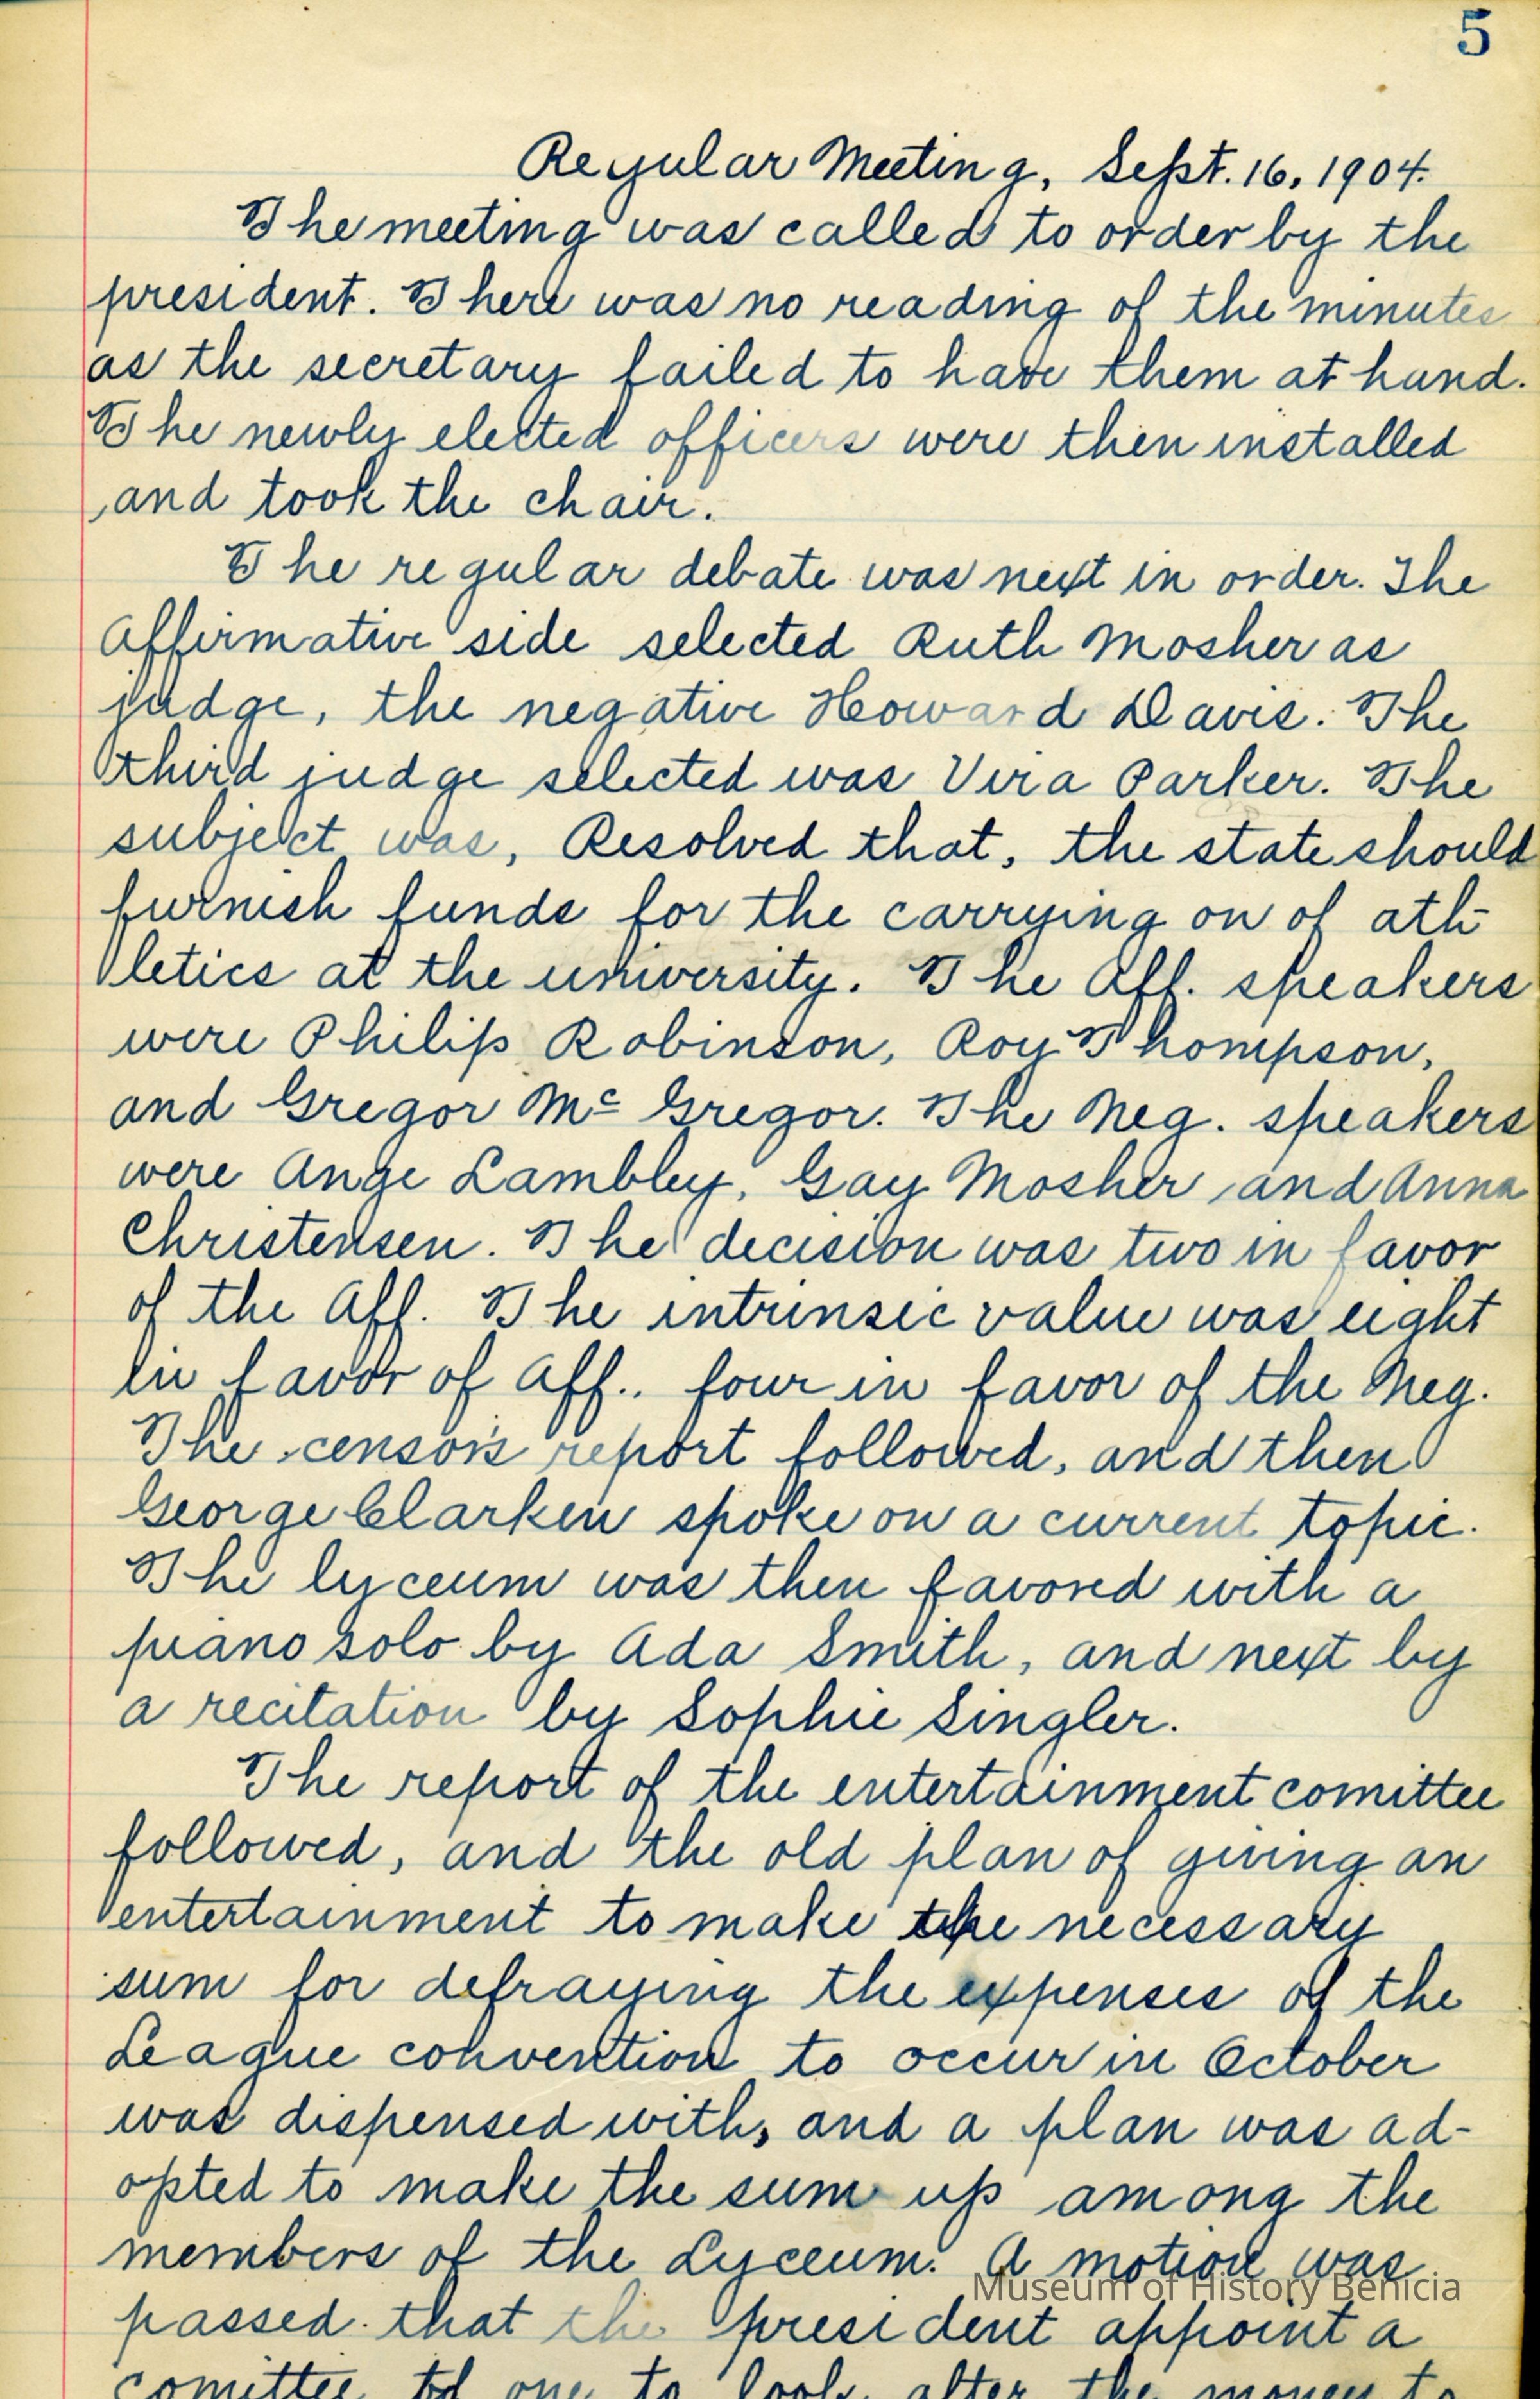 5
Regular Meeting, Sept. 16, 1904.
The meeting was called to order by the
president. There was no reading of the minutes
as the secretary failed to have them at hand.
The newly elected officers were then installed
and took the chair.
The regular debate was next in order. The
Affirmative side selected Ruth Mosher as
judge, the negative Howard Davis. The
third judge selected was Vera Parker. The
subject was, Resolved that, the state should
furnish funds for the carrying on of ath-
letics at the university. The Aff. speakers
were Philip Robinson, Roy Thompson,
and Gregor Mc Gregor. The Neg. speakers
were Ange Lambley, Gay Mosher and Anna
Christensen. The decision was two in favor
of the Aff. The intrinsic value was eight
in favor of Aff., four in favor of the Neg.
The censor's report followed, and then
George Clarken spoke on a current topic.
The lyceum was then favored with a
piano solo by Ada Smith, and next by
a recitation by Sophie Singler.
The report of the entertainment comittee
followed, and the old plan of giving an
entertainment to make the necessary
sum for defraying the expenses of the
League convention to occur in October
was dispensed with, and a plan was ad-
opted to make the sum up among the
members of the Lyceum. A motion was
Museum of History Benicia
passed that the president appoint a
comittee of one to look after the money to